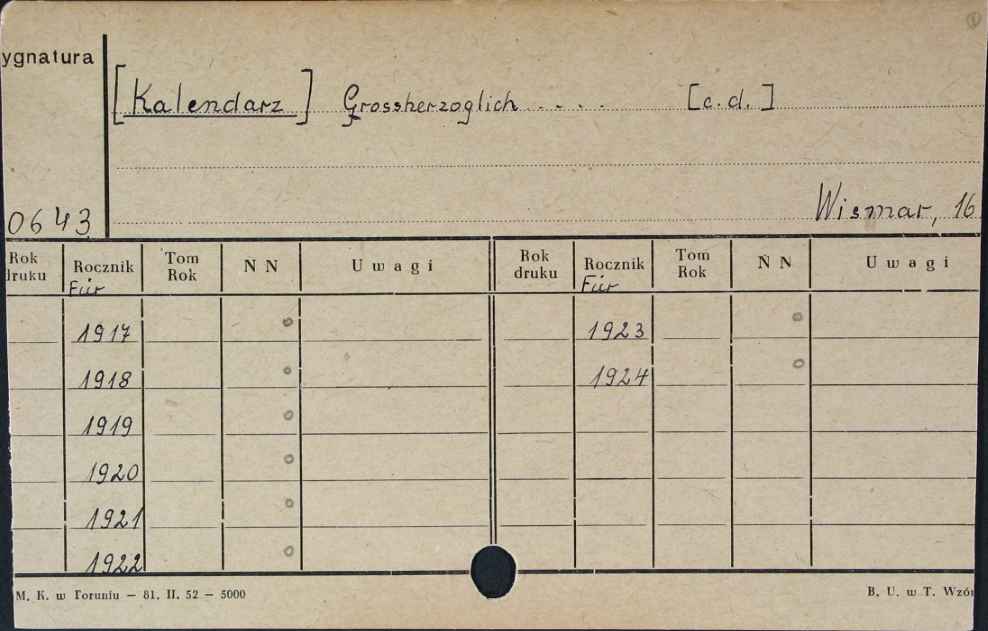 ygnatura
[Kalendarz] Grossherzoglich . . . . [c.d.]
0643
Wismar, 16
Rok druku Rocznik Tom Rok N N Uwagi Rok druku Rocznik Tom Rok N N Uwagi
Für Für
1917 1923
1918 1924
1919
1920
1921
1922
M. K. w Toruniu — 81. II. 52 — 5000 B. U. w T. Wzór